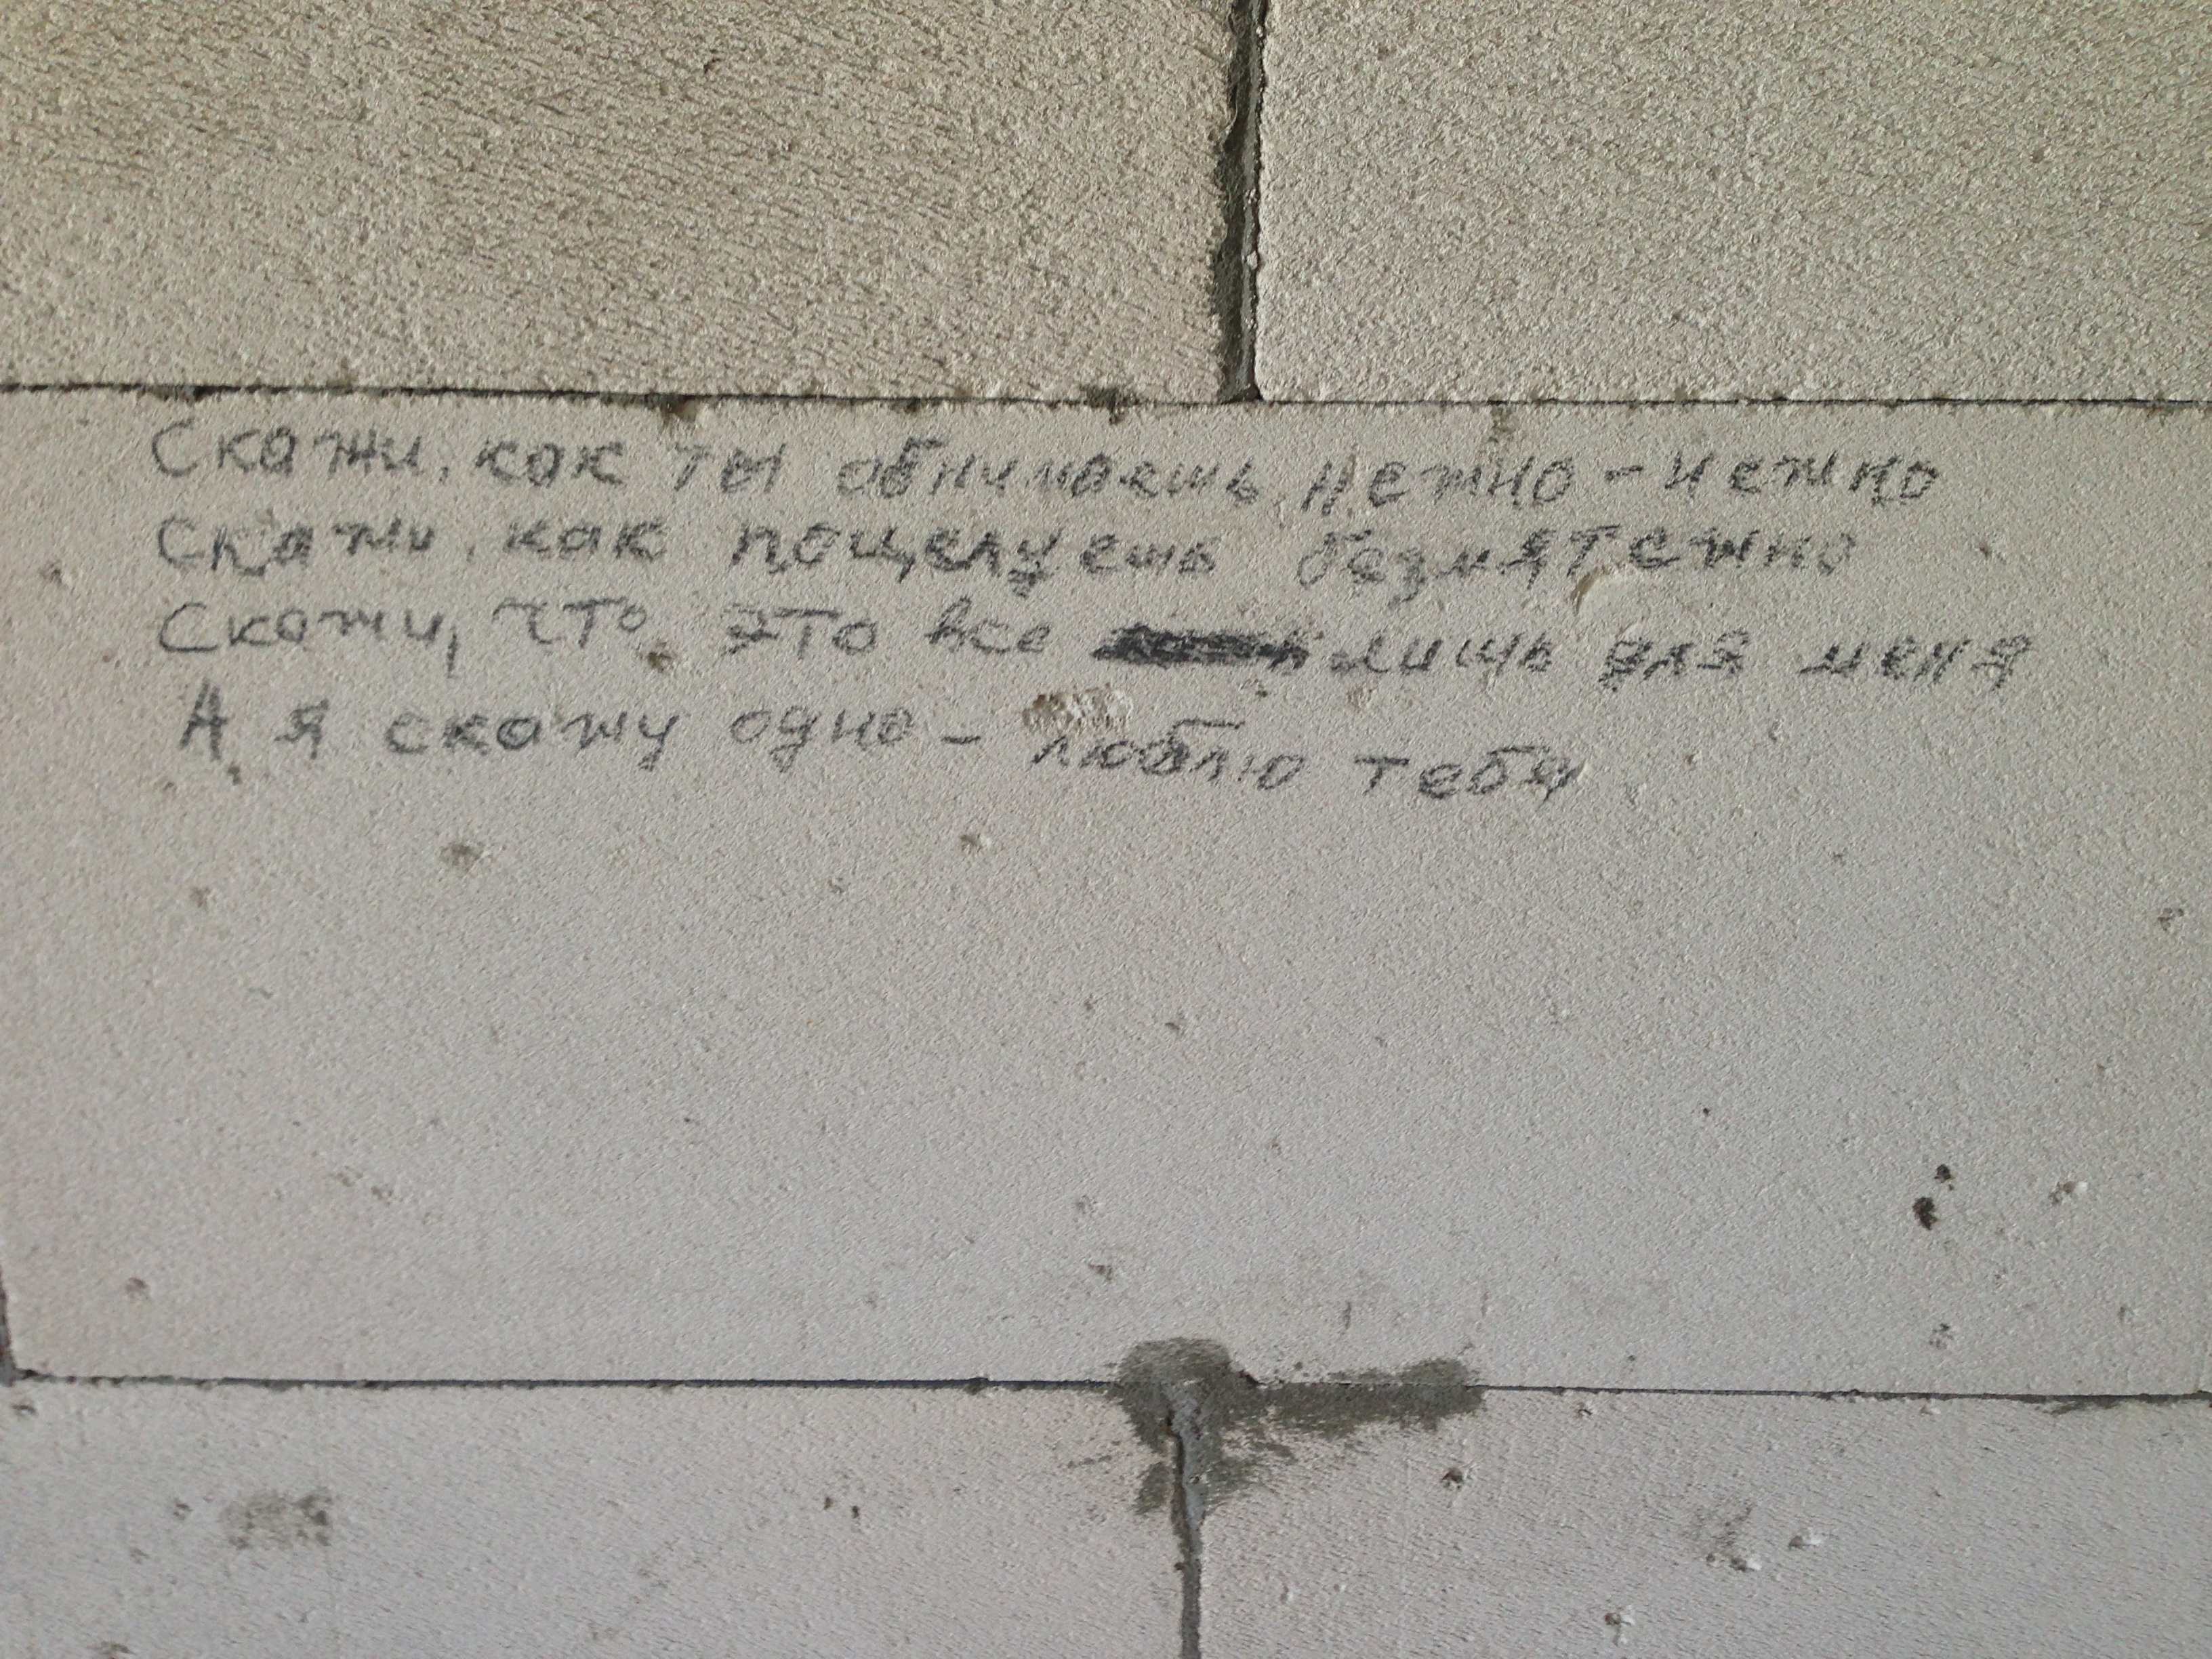 Скажи, как ты обнимаешь нежно-нежно
Скажи, как поцелуешь безмятежно
Скажи, что это все лишь для меня
А я скажу одно - люблю тебя